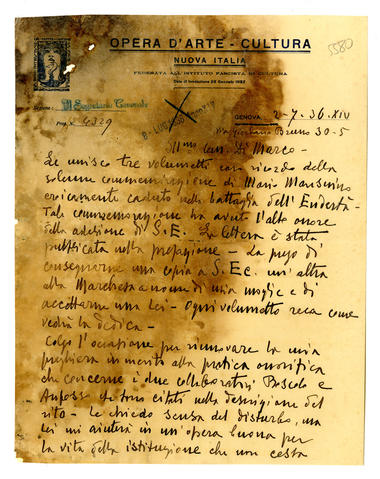 5580
OPERA D'ARTE - CULTURA
NUOVA ITALIA
FEDERATA ALL'ISTITUTO FASCISTA DI CULTURA
Il Segretario Generale
GENOVA 2-7-36-XIV
4329
Bruno 30-5
Ill.mo Di Marco-
Le unisco tre volumetti con ricordo della
solenne commemorazione di Mario
eroicamente caduto nella battaglia dell'Endertà-
Tale commemorazione ha avuto l'alto onore
della adesione di S.E. La lettera è stata
pubblicata nella prefazione - La prego di
consegnarne una copia a S.Ec. un'altra
alla Marchesa a nome di mia moglie e di
accettarne una Lei - Ogni volumetto reca come
vedrà la dedica -
Colgo l'occasione per rinnovare la mia
preghiera in merito alla pratica onorifica
che concerne i due collaboratori e
citato nella del
rito - Le chiedo scusa del disturbo, ma
Lei mi aiuterà in un'opera buona per
la vita della istituzione che non costa